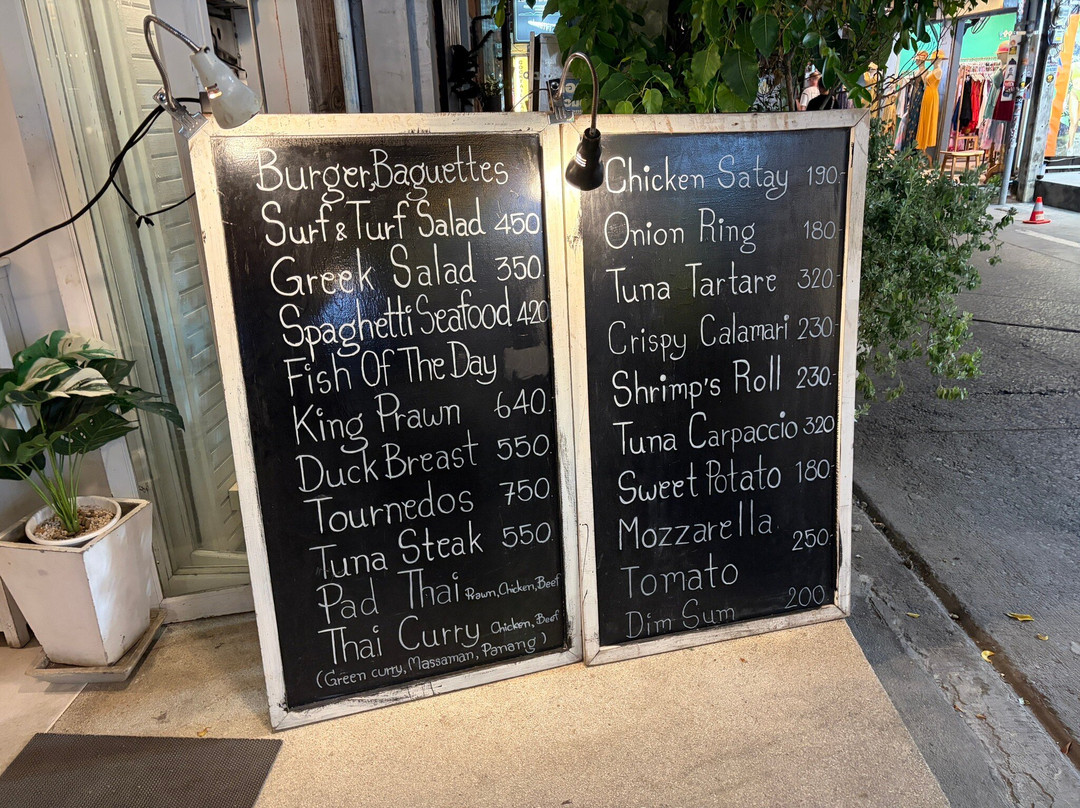 Burger,Baguettes
Surf & Turf Salad 450
Greek Salad 350.
Spaghetti Seafood 420
Fish Of The Day
King Prawn 640.
Duck Breast 550.
Tournedos 750.
Tuna Steak 550.
Pad Thai Prawn, Chicken, Beef
Thai Curry Chicken, Beef
(Green curry, Massaman, Panang)
Chicken Satay 190.-
Onion Ring 180.-
Tuna Tartare 320.-
Crispy Calamari 230.-
Shrimp's Roll 230.-
Tuna Carpaccio 320
Sweet Potato 180.-
Mozzarella
250.-
Tomato
Dim Sum 200